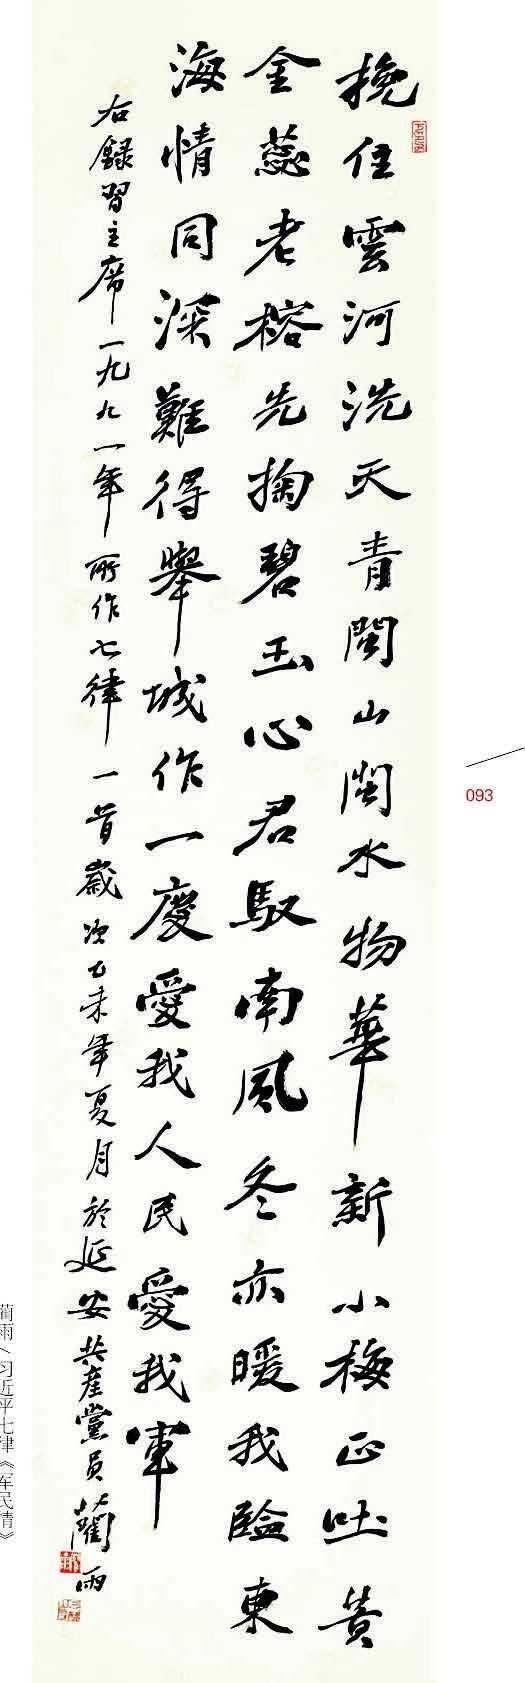 挽住雲河洗天青閩山閩水物華新小梅正吐黃
金蕊老榕先掬碧玉心君馭南風冬亦暖我臨東
海情同深難得舉城作一慶愛我人民愛我軍
右録習主席一九九一年所作七律一首歲次乙未年夏月於延安共產黨員藺雨
093
藺雨/习近平七律《军民情》